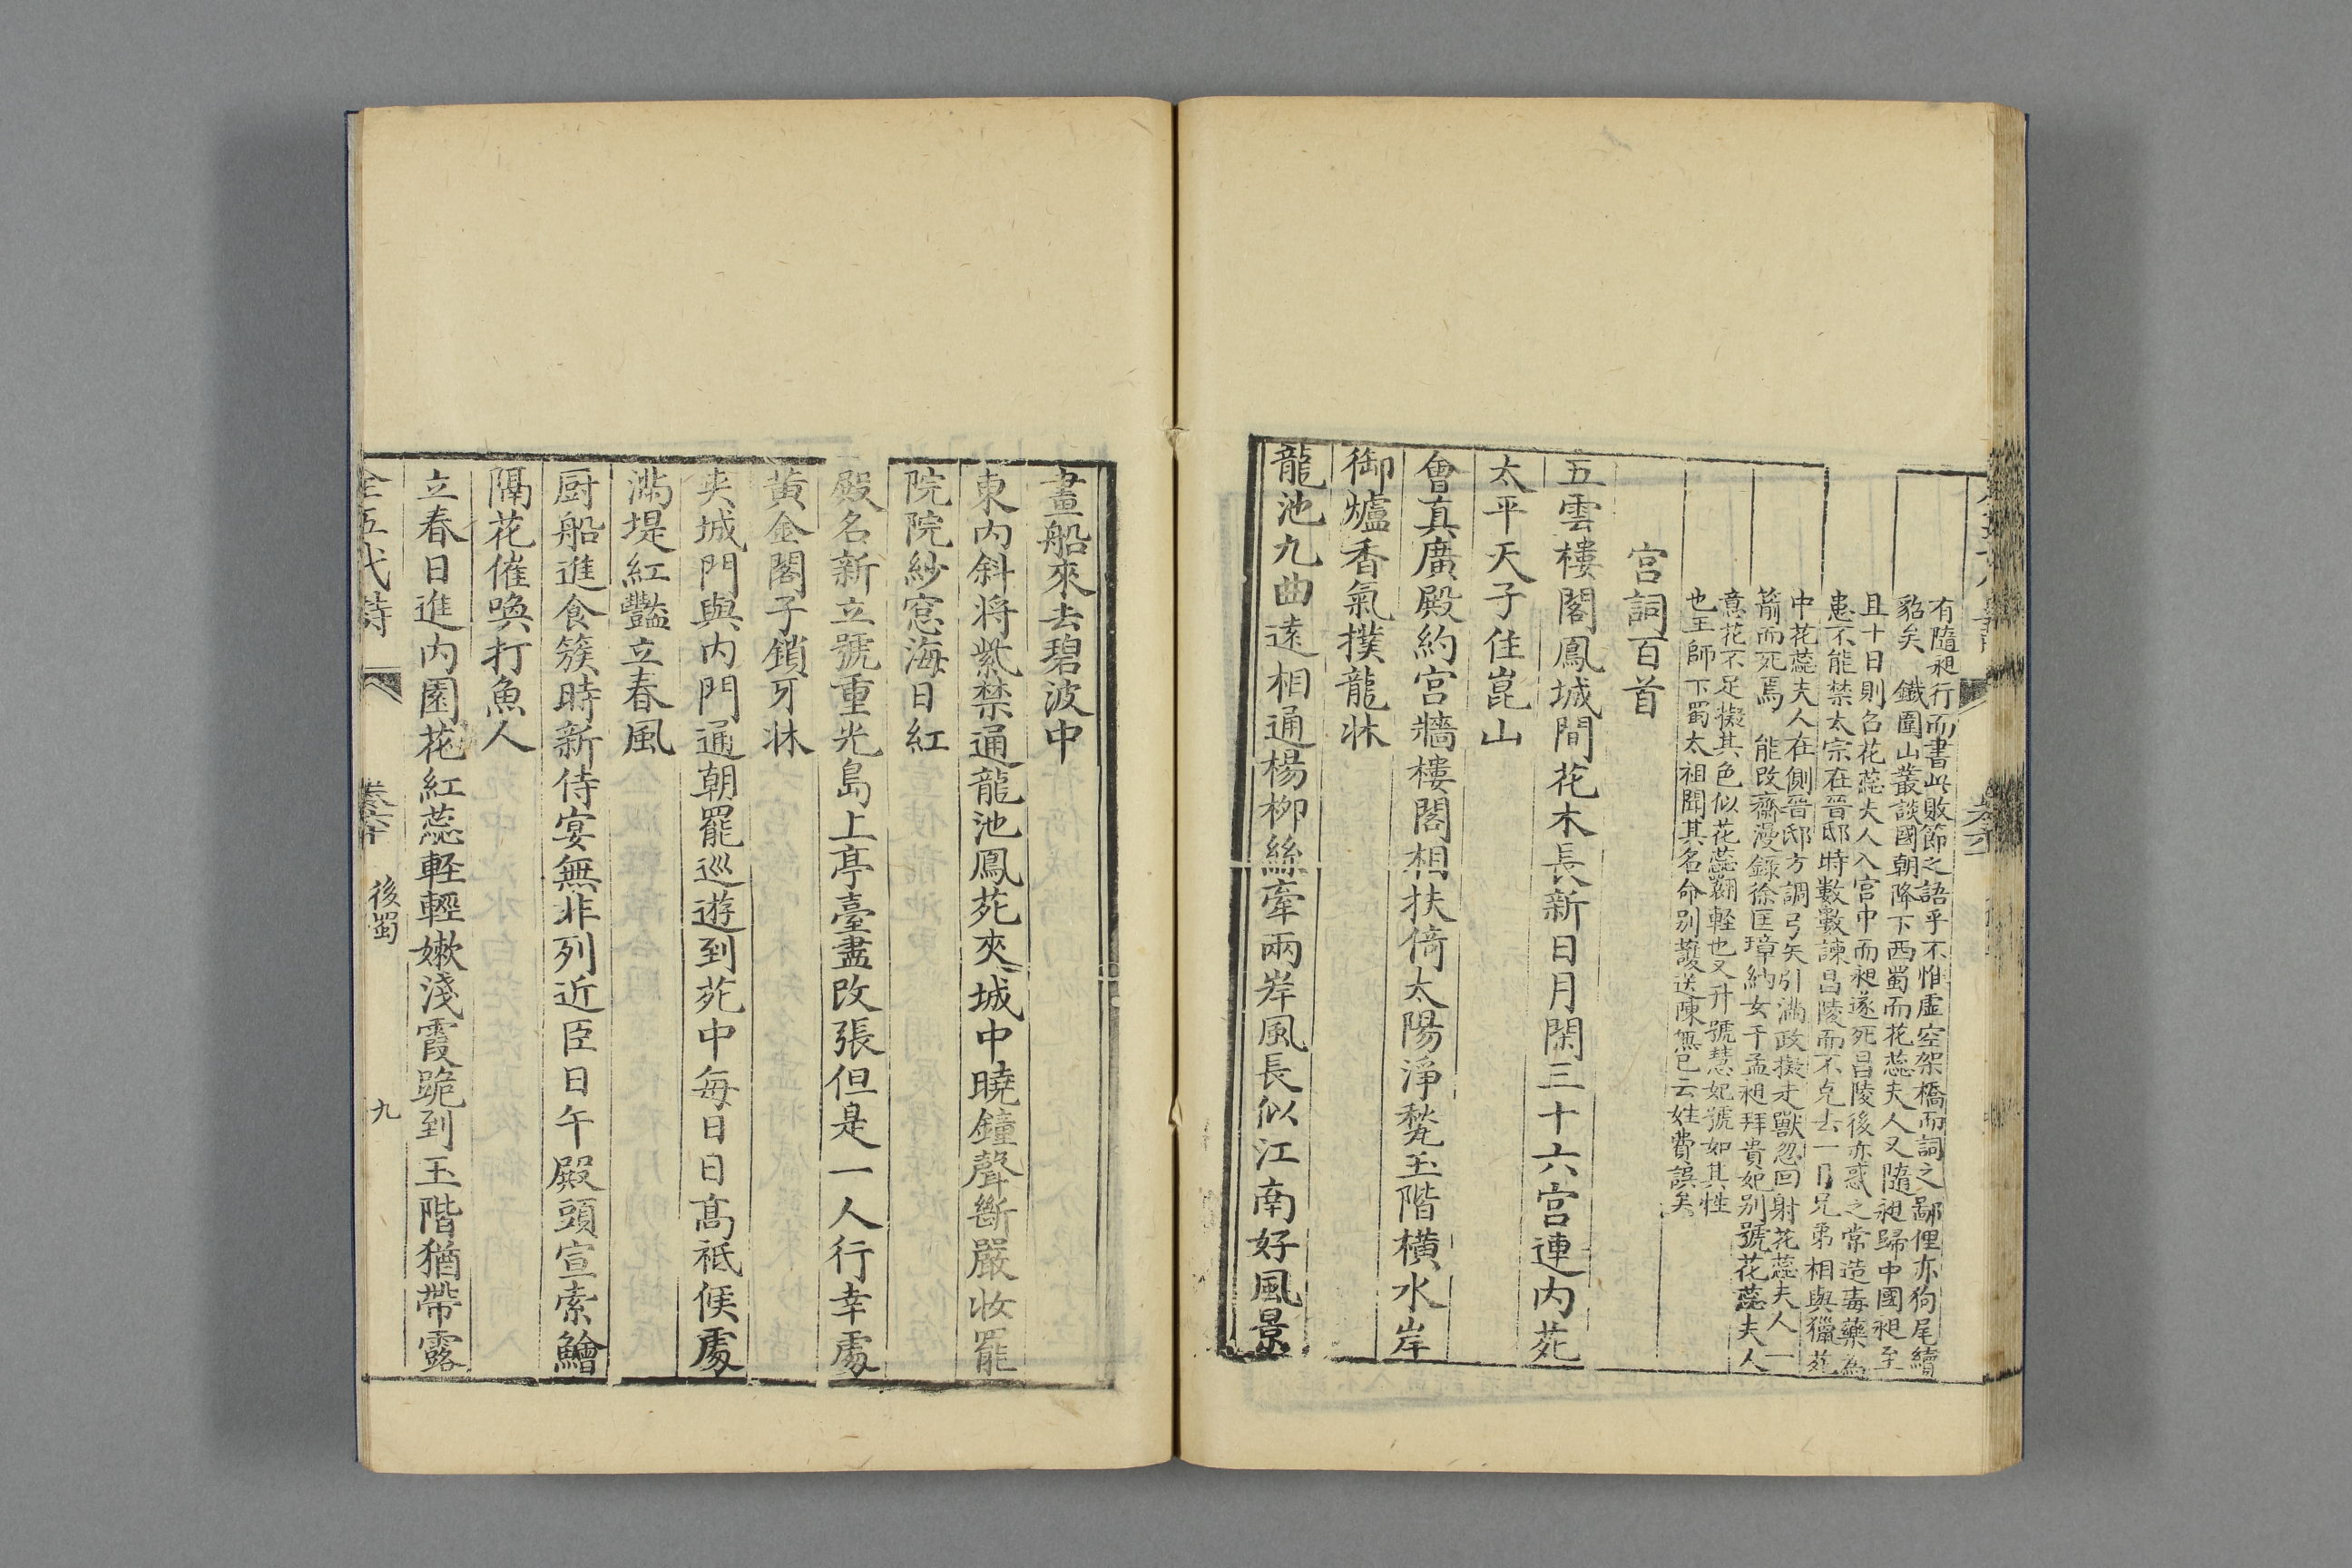 有隨昶行而書此敗節之語乎不惟虛空架橋而詞之鄙俚亦狗尾續
貂矣 鐵圍山叢談國朝降下西蜀而花蕊夫人又隨昶歸中國昶至
且十日則召花蕊夫人入宮中而昶遂死昌陵後亦惑之常造毒藥為
患不能禁太宗在晉邸時數數諫昌陵而不克去一日兄弟相與獵苑
中花蕊夫人在側晉邸方調弓矢引滿政擬走獸忽回射花蕊夫人一
箭而死焉 能改齋漫錄徐匡璋納女于孟昶拜貴妃別號花蕊夫人
意花不足擬其色似花蕊翾輕也又升號慧妃號如其性
也王師下蜀太祖聞其名命別護送陳無已云姓費誤矣
宮詞百首
五雲樓閣鳳城間花木長新日月閑三十六宮連內苑
太平天子住崑山
會真廣殿約宮牆樓閣相扶倚太陽淨甃玉階橫水岸
御爐香氣撲龍牀
龍池九曲遠相通楊柳絲牽兩岸風長似江南好風景
畫船來去碧波中
東內斜將紫禁通龍池鳳苑夾城中曉鐘聲斷嚴妝罷
院院紗窓海日紅
殿名新立號重光島上亭臺盡改張但是一人行幸處
黃金閣子鎖牙牀
夾城門與內門通朝罷巡遊到苑中每日日高祗候處
滿堤紅豔立春風
厨船進食簇時新侍宴無非列近臣日午殿頭宣索鱠
隔花催喚打魚人
立春日進內園花紅蕊輕輕嫩淺霞跪到玉階猶帶露
全五代詩 卷六十 後蜀 九